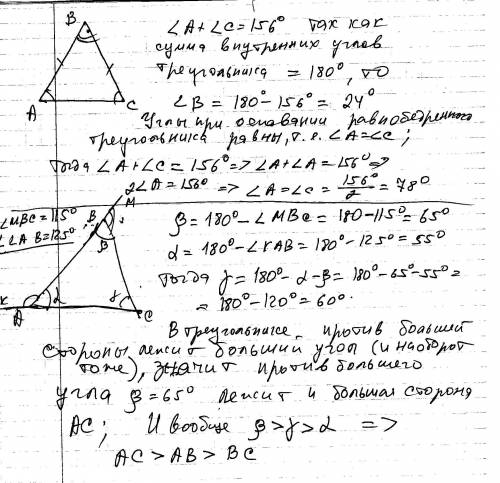 B
A
C
∠A+∠C=156° так как
сумма внутренних углов
треугольника = 180°, то
∠B = 180° - 156° = 24°
Углы при основании равнобедренного
треугольника равны, т.е. ∠A=∠C;
Тогда ∠A+∠C = 156° => ∠A+∠A = 156° =>
2∠A = 156° => ∠A=∠C = 156°/2 = 78°
∠MBC=115°
∠KAB=125°
M
B
β
K
A
α
γ
C
β = 180° - ∠MBC = 180 - 115° = 65°
α = 180° - ∠KAB = 180° - 125° = 55°
Тогда γ = 180° - α - β = 180° - 65° - 55° =
= 180° - 120° = 60°.
В треугольнике против большей
стороны лежит больший угол (и наоборот
тоже), значит против большего
угла β = 65° лежит и большая сторона
AC; И вообще β > γ > α =>
AC > AB > BC